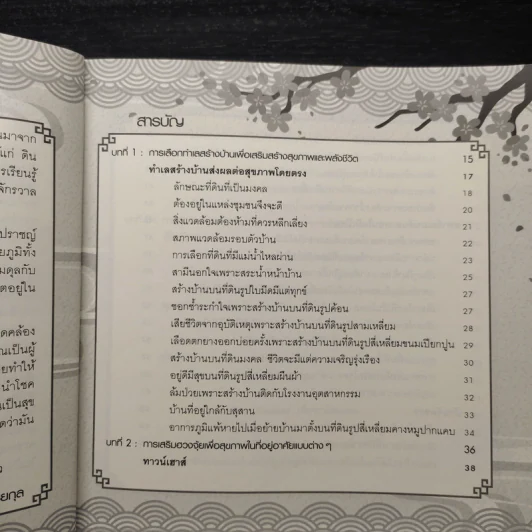 นมาจาก
แก่ ดิน
ารเรียนรู้
จักรวาล
ปราชญ์
ยภูมิทั้ง
มดุลกับ
ตอยู่ใน
ดคล้อง
ณเป็นผู้
ยทำให้
นำโชค
นเป็นสุข
ดว่ามัน
ยกุล
สารบัญ
บทที่ 1 : การเลือกทำเลสร้างบ้านเพื่อเสริมสร้างสุขภาพและพลังชีวิต 15
ทำเลสร้างบ้านส่งผลต่อสุขภาพโดยตรง 17
ลักษณะที่ดินที่เป็นมงคล 18
ต้องอยู่ในแหล่งชุมชนจึงจะดี 20
สิ่งแวดล้อมต้องห้ามที่ควรหลีกเลี่ยง 21
สภาพแวดล้อมรอบตัวบ้าน 22
การเลือกที่ดินที่มีแม่น้ำไหลผ่าน 23
สามีนอกใจเพราะสระน้ำหน้าบ้าน 25
สร้างบ้านบนที่ดินรูปใบมีดมีแต่ทุกข์ 27
ชอกช้ำระกำใจเพราะสร้างบ้านบนที่ดินรูปค้อน 27
เสียชีวิตจากอุบัติเหตุเพราะสร้างบ้านบนที่ดินรูปสามเหลี่ยม 28
เลือดตกยางออกบ่อยครั้งเพราะสร้างบ้านบนที่ดินรูปสี่เหลี่ยมขนมเปียกปูน 29
สร้างบ้านบนที่ดินมงคล ชีวิตจะมีแต่ความเจริญรุ่งเรือง 30
อยู่ดีมีสุขบนที่ดินรูปสี่เหลี่ยมผืนผ้า 31
ล้มป่วยเพราะสร้างบ้านติดกับโรงงานอุตสาหกรรม 32
บ้านที่อยู่ใกล้กับสุสาน 33
อาการภูมิแพ้หายไปเมื่อย้ายบ้านมาตั้งบนที่ดินรูปสี่เหลี่ยมคางหมูปากแคบ 34
บทที่ 2 : การเสริมฮวงจุ้ยเพื่อสุขภาพในที่อยู่อาศัยแบบต่าง ๆ 36
ทาวน์เฮาส์ 38